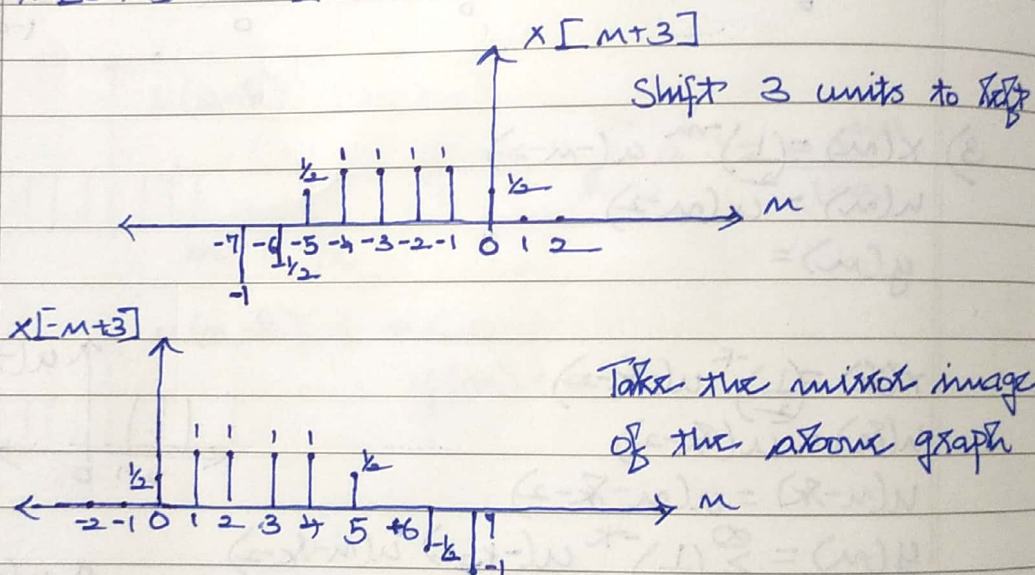 x[n+3]
Shift 3 units to left
1/2 1 1 1 1 1/2
n
-7 -6 -5 -4 -3 -2 -1 0 1 2
-1/2
-1
x[-n+3]
Take the mirror image
of the above graph
1/2 1 1 1 1 1/2
n
-2 -1 0 1 2 3 4 5 +6
-1/2
-1